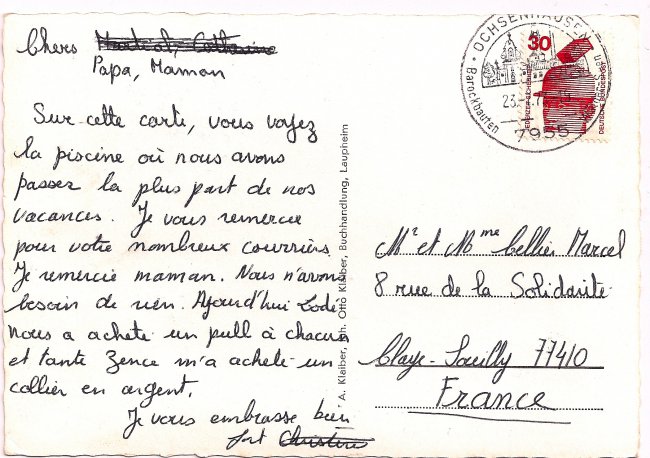 Chers Martial, Catherine
Papa, Maman
Sur cette carte, vous voyez
la piscine où nous avons
passer la plus part de nos
vacances. Je vous remercie
pour votre nombreux courriers.
Je remercie maman. Nous n'avons
besoin de rien. Ajourd'hui Lodé
nous a acheté un pull à chacun
et tante Zence m'a acheté un
collier en argent.
Je vous embrasse bien
fort Christine
A. Klaiber, Inh. Otto Klaiber, Buchhandlung, Laupheim
OCHSENHAUSEN
Barockbauten
23.
7955
30
DEUTSCHE BUNDESPOST
Mr et Mme Cellier Marcel
8 rue de la Solidarité
Claye-Souilly 77410
France